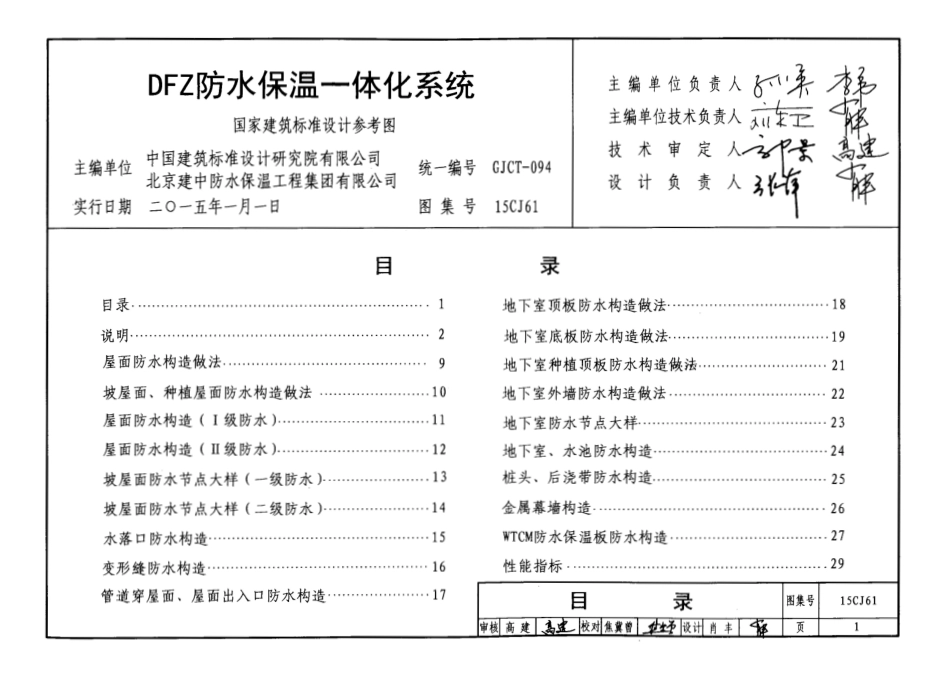 DFZ防水保温一体化系统
国家建筑标准设计参考图
主编单位 中国建筑标准设计研究院有限公司
北京建中防水保温工程集团有限公司
统一编号 GJCT-094
实行日期 二〇一五年一月一日
图集号 15CJ61
主编单位负责人
主编单位技术负责人
技术审定人
设计负责人
目 录
目录 1
说明 2
屋面防水构造做法 9
坡屋面、种植屋面防水构造做法 10
屋面防水构造（Ⅰ级防水） 11
屋面防水构造（Ⅱ级防水） 12
坡屋面防水节点大样（一级防水） 13
坡屋面防水节点大样（二级防水） 14
水落口防水构造 15
变形缝防水构造 16
管道穿屋面、屋面出入口防水构造 17
地下室顶板防水构造做法 18
地下室底板防水构造做法 19
地下室种植顶板防水构造做法 21
地下室外墙防水构造做法 22
地下室防水节点大样 23
地下室、水池防水构造 24
桩头、后浇带防水构造 25
金属幕墙构造 26
WTCM防水保温板防水构造 27
性能指标 29
目 录 图集号 15CJ61
审核 高建 高建 校对 焦冀曾 设计 肖丰 页 1